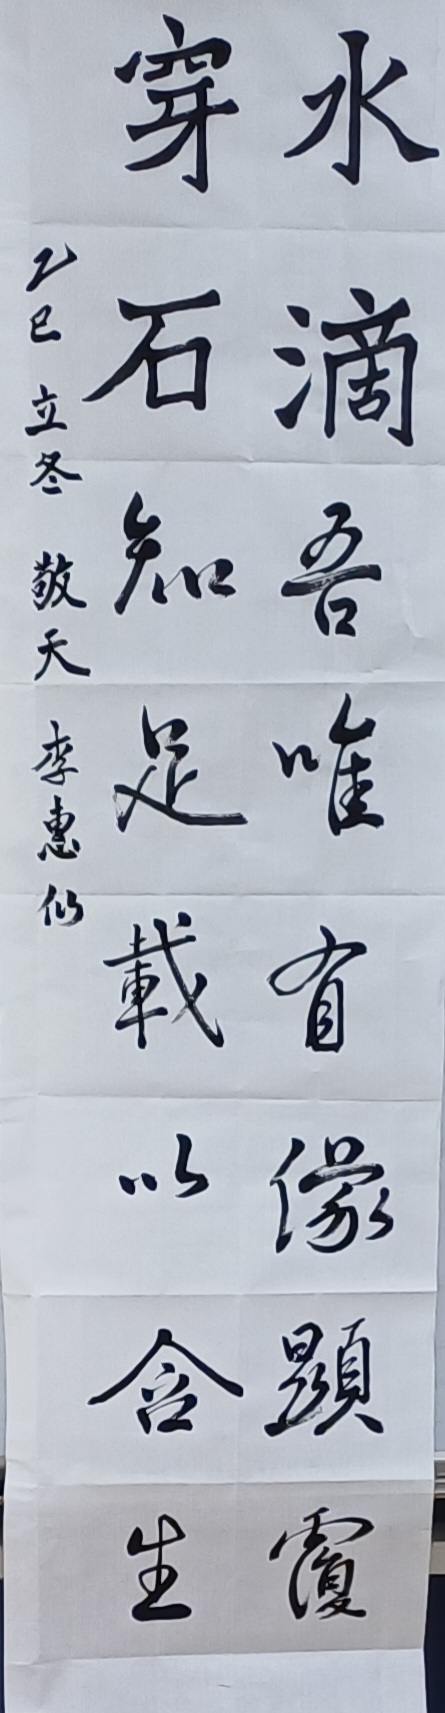 水滴吾唯有像顯覆
穿石知足載以含生
乙巳 立冬 敬天 李惠